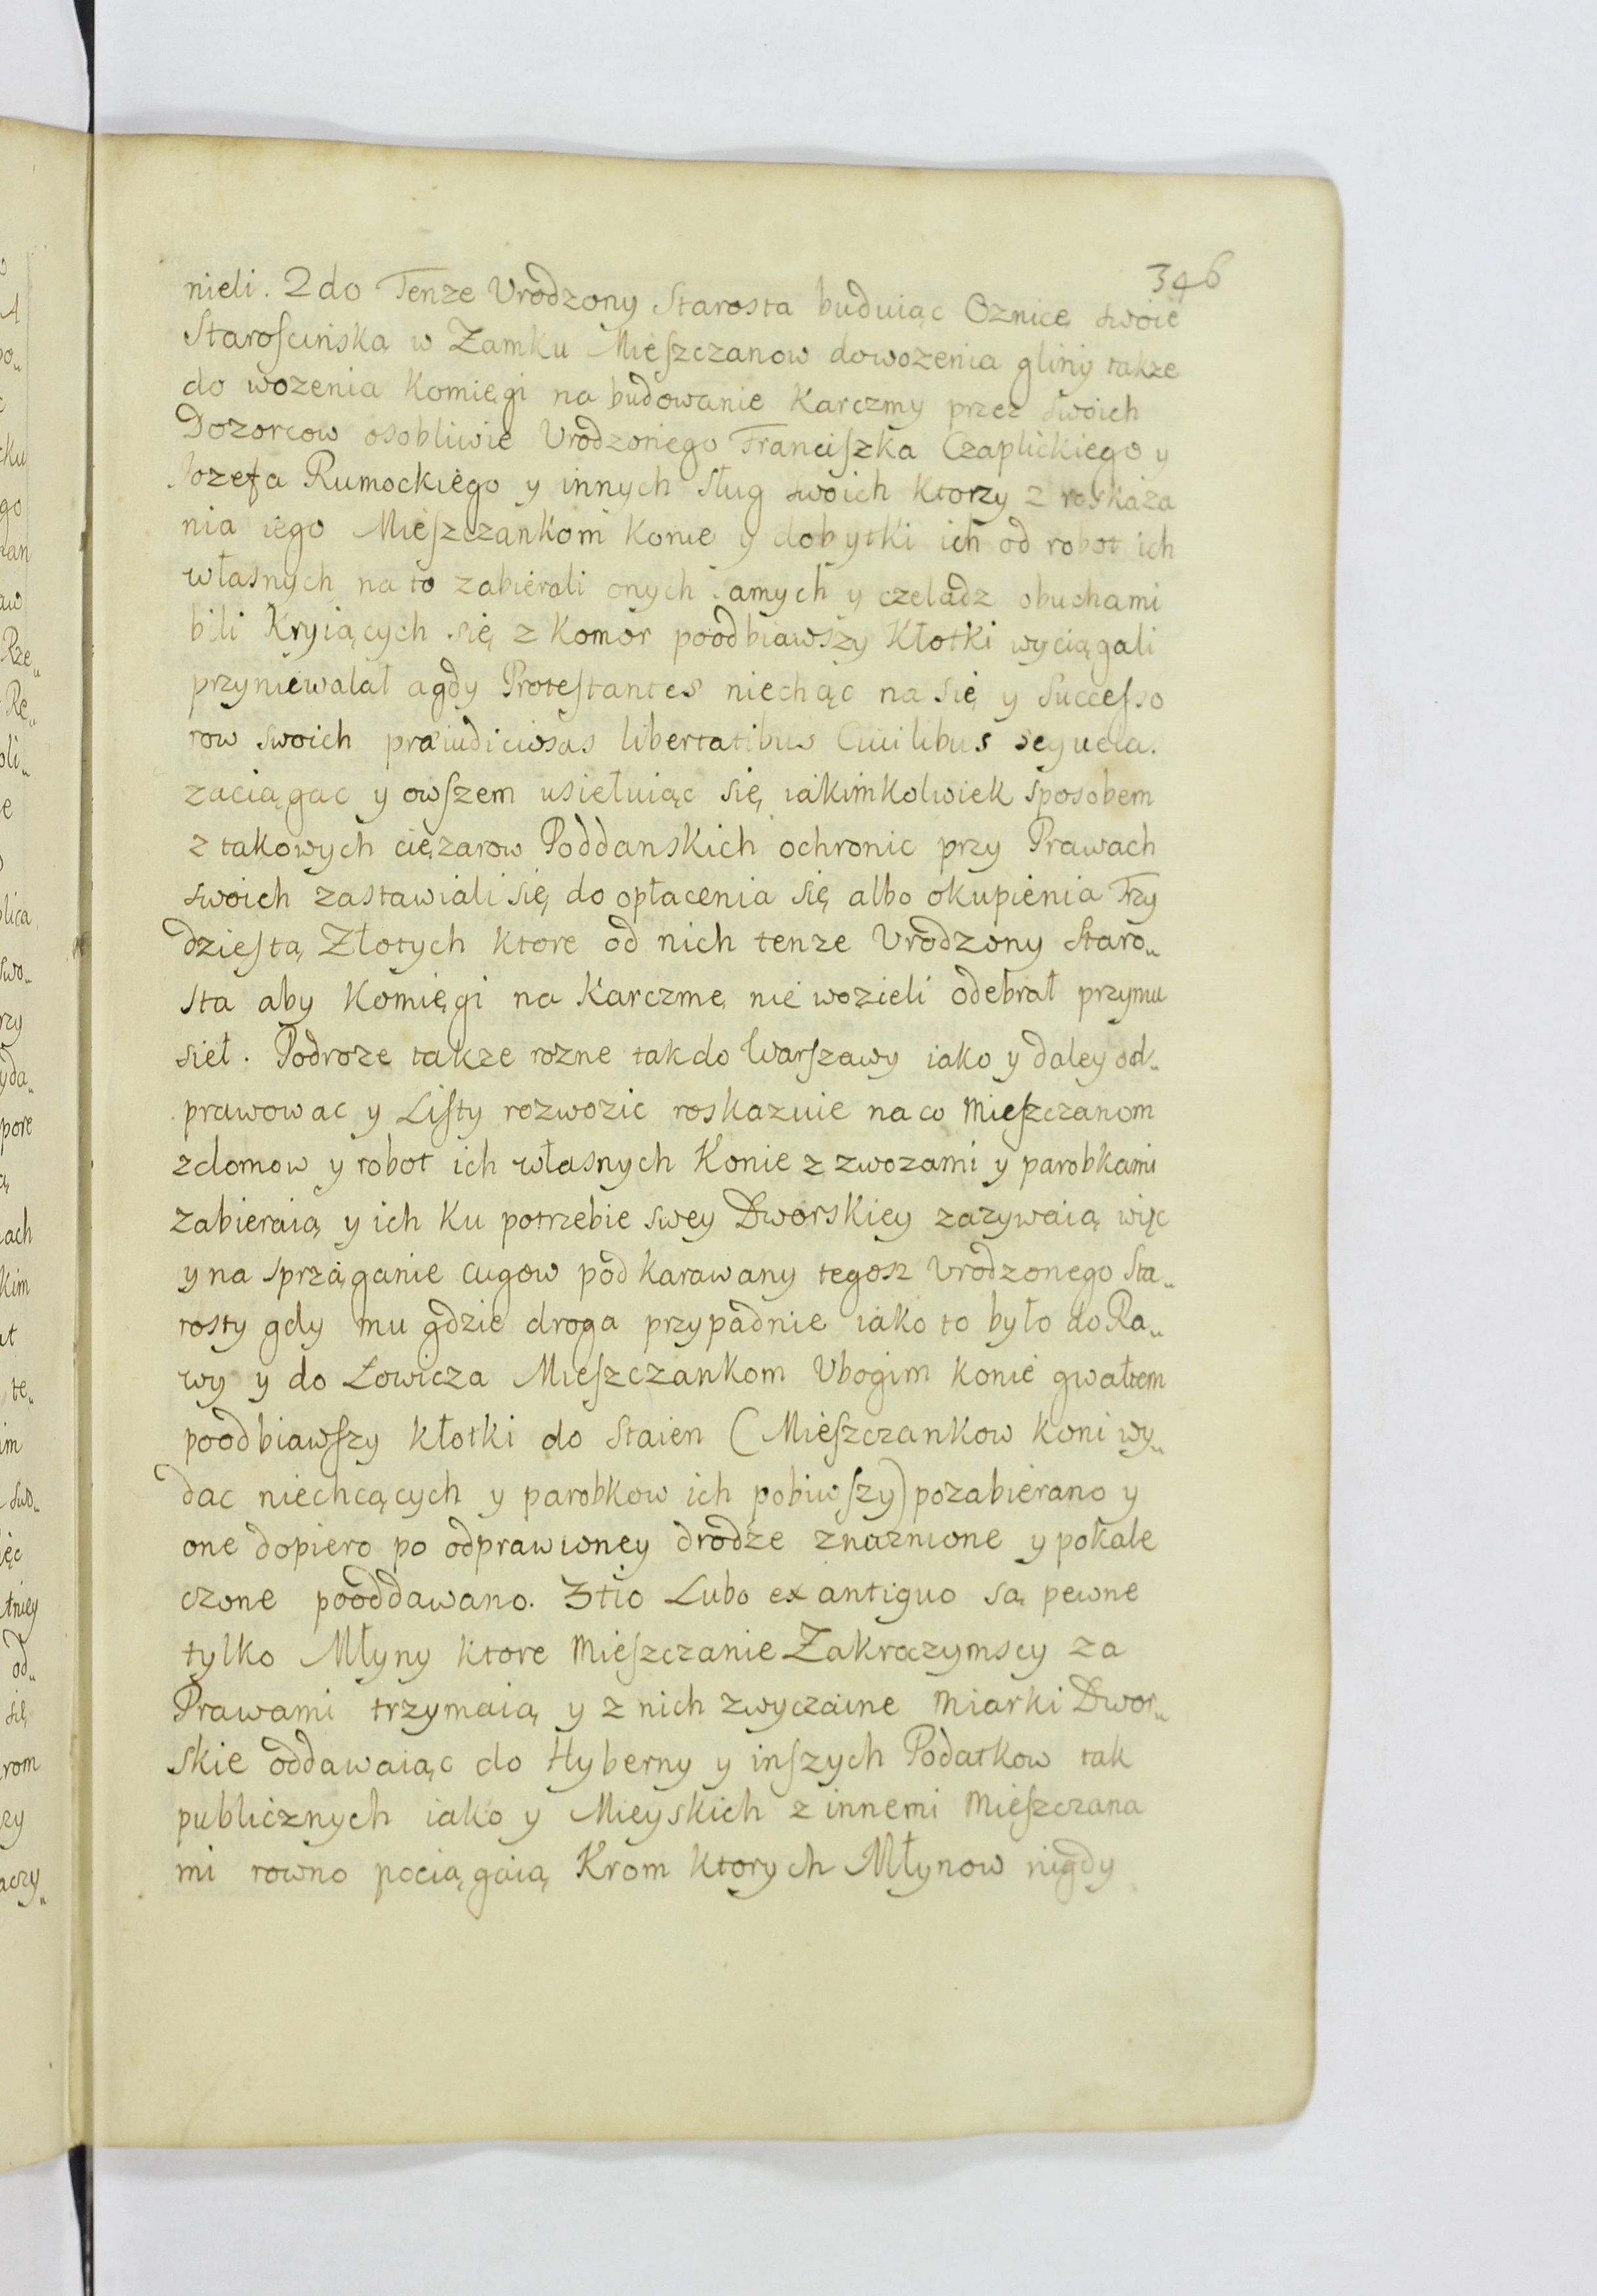 346
nieli. 2do Tenze Vrodzony Starosta buduiąc Oznicę swoię
Staroscinską w Zamku Mieszczanow dowozenia gliny takze
do wozenia Komięgi na budowanie Karczmy przez swoich
Dozorcow osobliwie Vrodzonego Franciszka Czaplickiego y
Jozefa Rumockiego y innych sług swoich ktorzy z roskaza
nia iego Mieszczankom Konie y dobytki ich od robot ich
własnych na to zabierali onych samych y czeladz obuchami
bili Kryiących się z Komor poodbiawszy Kłotki wyciągali
przyniewalał agdy Protestantes niechąc na się y Successo
row swoich præiudiciosas libertatibus Ciuilibus sequelas
zaciągac y owszem usiełuiąc się iakimkolwiek sposobem
z takowych cięzarow Poddanskich ochronic przy Prawach
swoich zastawiali się do opłacenia się albo okupienia Trzy
dziestą Złotych ktore od nich tenze Vrodzony Staro„
sta aby Komięgi na Karczmę nie wozieli odebrał przymu
sieł. Podroze takze rozne tak do Warszawy iako y daley od„
prawowac y Listy rozwozic roskazuie na co Mieszczanom
z domow y robot ich własnych Konie z zwozami y parobkami
zabieraią y ich ku potrzebie swey Dworskiey zazywaią więc
y na sprząganie cugow pod karawany tegosz Vrodzonego Sta„
rosty gdy mu gdzie droga przypadnie iako to było do Ra„
wy y do Łowicza Mieszczankom Vbogim konie gwałtem
poodbiawszy kłotki do Staien (Mieszczankow koni wy„
dac niechcących y parobkow ich pobiwszy) pozabierano y
one dopiero po odprawioney drodze znaznione y pokale
czone pooddawano. 3tio Lubo ex antiquo są pewne
tylko Młyny ktore Mieszczanie Zakroczymscy za
Prawami trzymaią y z nich zwyczaine miarki Dwor„
skie oddawaiąc do Hyberny y inszych Podatkow tak
publicznych iako y Mieyskich z innemi Mieszczana
mi rowno pociągaią Krom ktorych Młynow nigdy